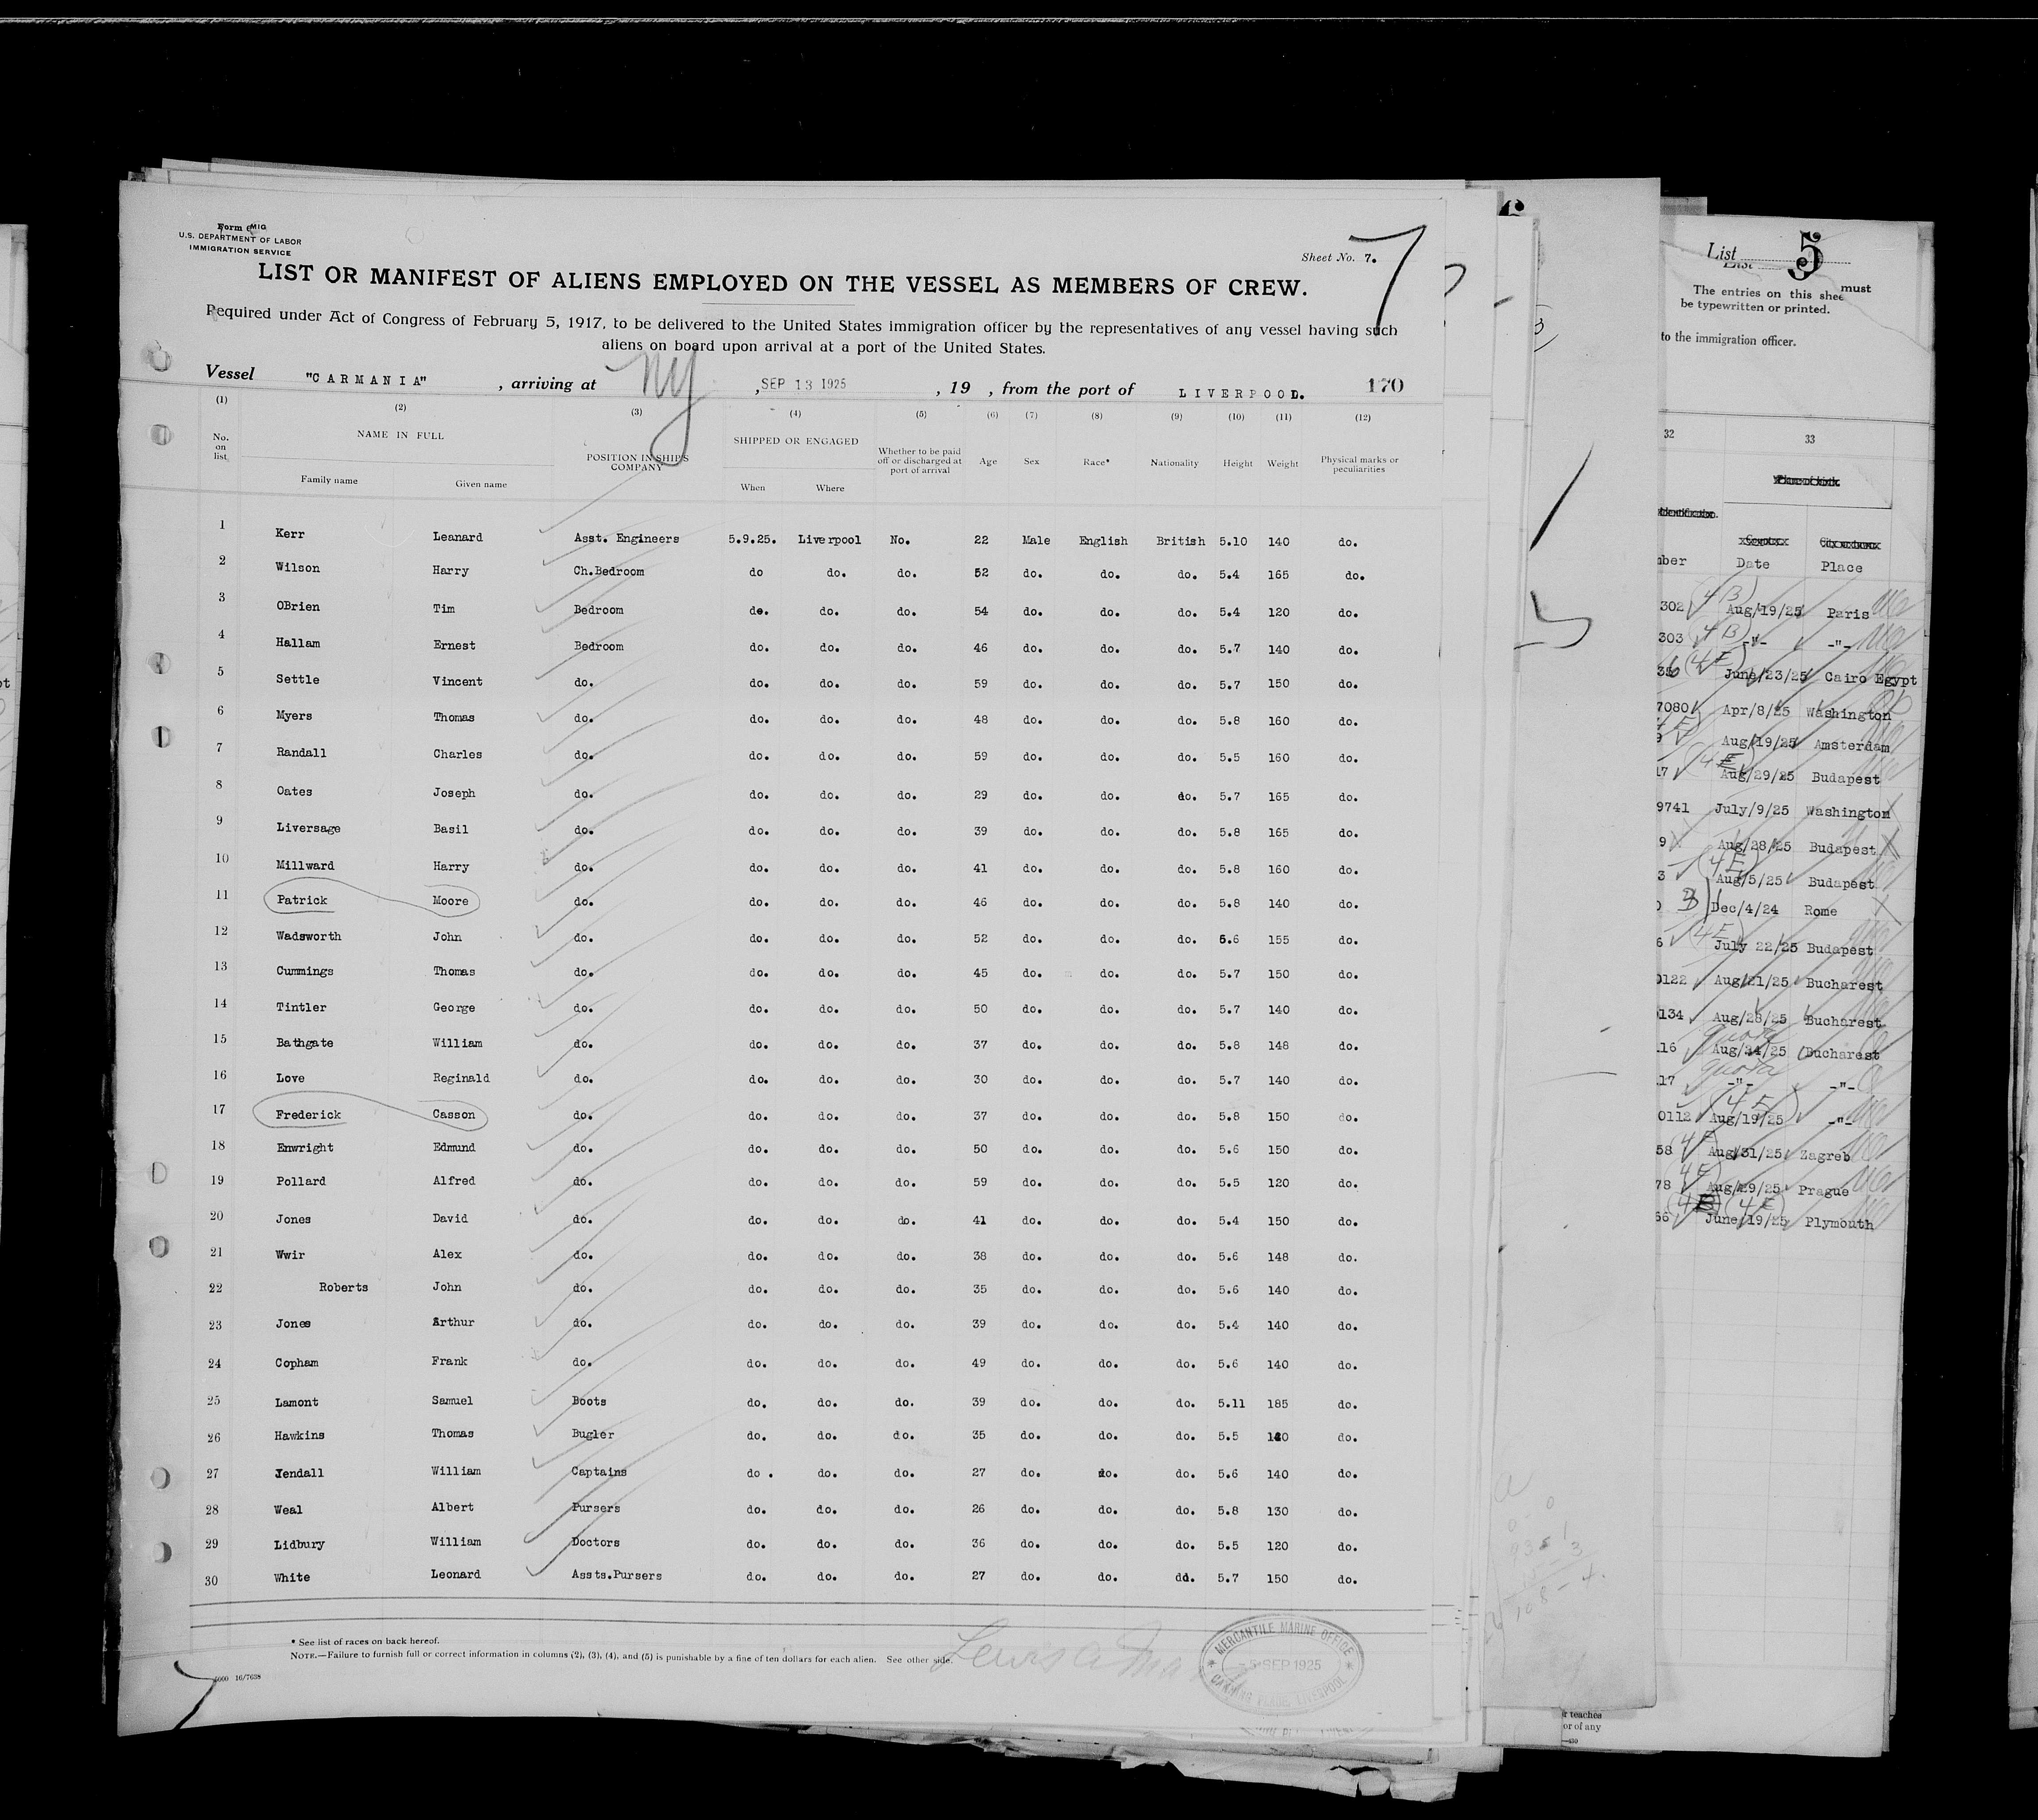 Form MIG
U.S. DEPARTMENT OF LABOR
IMMIGRATION SERVICE
Sheet No. 7.
7
LIST OR MANIFEST OF ALIENS EMPLOYED ON THE VESSEL AS MEMBERS OF CREW.
Required under Act of Congress of February 5, 1917, to be delivered to the United States immigration officer by the representatives of any vessel having such
aliens on board upon arrival at a port of the United States.
Vessel "CARMANIA" , arriving at NY , SEP 13 1925 , 19 , from the port of LIVERPOOL. 170
(1) (2) (3) (4) (5) (6) (7) (8) (9) (10) (11) (12)
No. on list. NAME IN FULL POSITION IN SHIP'S COMPANY SHIPPED OR ENGAGED Whether to be paid off or discharged at port of arrival Age Sex Race* Nationality Height Weight Physical marks or peculiarities
Family name Given name When Where
1 Kerr Leanard Asst. Engineers 5.9.25. Liverpool No. 22 Male English British 5.10 140 do.
2 Wilson Harry Ch.Bedroom do do. do. 52 do. do. do. 5.4 165 do.
3 OBrien Tim Bedroom do. do. do. 54 do. do. do. 5.4 120 do.
4 Hallam Ernest Bedroom do. do. do. 46 do. do. do. 5.7 140 do.
5 Settle Vincent do. do. do. do. 59 do. do. do. 5.7 150 do.
6 Myers Thomas do. do. do. do. 48 do. do. do. 5.8 160 do.
7 Randall Charles do. do. do. do. 59 do. do. do. 5.5 160 do.
8 Oates Joseph do. do. do. do. 29 do. do. do. 5.7 165 do.
9 Liversage Basil do. do. do. do. 39 do. do. do. 5.8 165 do.
10 Millward Harry do. do. do. do. 41 do. do. do. 5.8 160 do.
11 Patrick Moore do. do. do. do. 46 do. do. do. 5.8 140 do.
12 Wadsworth John do. do. do. do. 52 do. do. do. 5.6 155 do.
13 Cummings Thomas do. do. do. do. 45 do. do. do. 5.7 150 do.
14 Tintler George do. do. do. do. 50 do. do. do. 5.7 140 do.
15 Bathgate William do. do. do. do. 37 do. do. do. 5.8 148 do.
16 Love Reginald do. do. do. do. 30 do. do. do. 5.7 140 do.
17 Frederick Casson do. do. do. do. 37 do. do. do. 5.8 150 do.
18 Enwright Edmund do. do. do. do. 50 do. do. do. 5.6 150 do.
19 Pollard Alfred do. do. do. do. 59 do. do. do. 5.5 120 do.
20 Jones David do. do. do. do. 41 do. do. do. 5.4 150 do.
21 Wwir Alex do. do. do. do. 38 do. do. do. 5.6 148 do.
22 Roberts John do. do. do. do. 35 do. do. do. 5.6 140 do.
23 Jones Arthur do. do. do. do. 39 do. do. do. 5.4 140 do.
24 Copham Frank do. do. do. do. 49 do. do. do. 5.6 140 do.
25 Lamont Samuel Boots do. do. do. 39 do. do. do. 5.11 185 do.
26 Hawkins Thomas Bugler do. do. do. 35 do. do. do. 5.5 do.
27 Jendall William Captains do . do. do. 27 do. do. do. 5.6 140 do.
28 Weal Albert Pursers do. do. do. 26 do. do. do. 5.8 130 do.
29 Lidbury William Doctors do. do. do. 36 do. do. do. 5.5 120 do.
30 White Leonard Assts.Pursers do. do. do. 27 do. do. dd. 5.7 150 do.
* See list of races on back hereof.
NOTE.—Failure to furnish full or correct information in columns (2), (3), (4), and (5) is punishable by a fine of ten dollars for each alien. See other side.
16/7638
MERCANTILE MARINE OFFICE
- 5 SEP 1925
CANNING PLACE, LIVERPOOL
List 5
The entries on this sheet must
be typewritten or printed.
to the immigration officer.
32 33
Date Place
302 4B Aug/19/25 Paris
303 4B -"- -"-
4E June/23/25 Cairo Egypt
7080 Apr/8/25 Washington
9 Aug/19/25 Amsterdam
17 4E Aug/29/25 Budapest
9741 July/9/25 Washington
9 Aug/28/25 Budapest
3 4E Aug/5/25 Budapest
Dec/4/24 Rome
6 4E July 22/25 Budapest
0122 Aug/21/25 Bucharest
134 Aug/28/25 Bucharest
116 quota Aug/24/25 Bucharest
117 quota -"- -"-
0112 4E Aug/19/25 -"-
58 4E Aug/31/25 Zagreb
78 4E Aug/29/25 Prague
56 4E June/19/25 Plymouth
r teaches
or of any